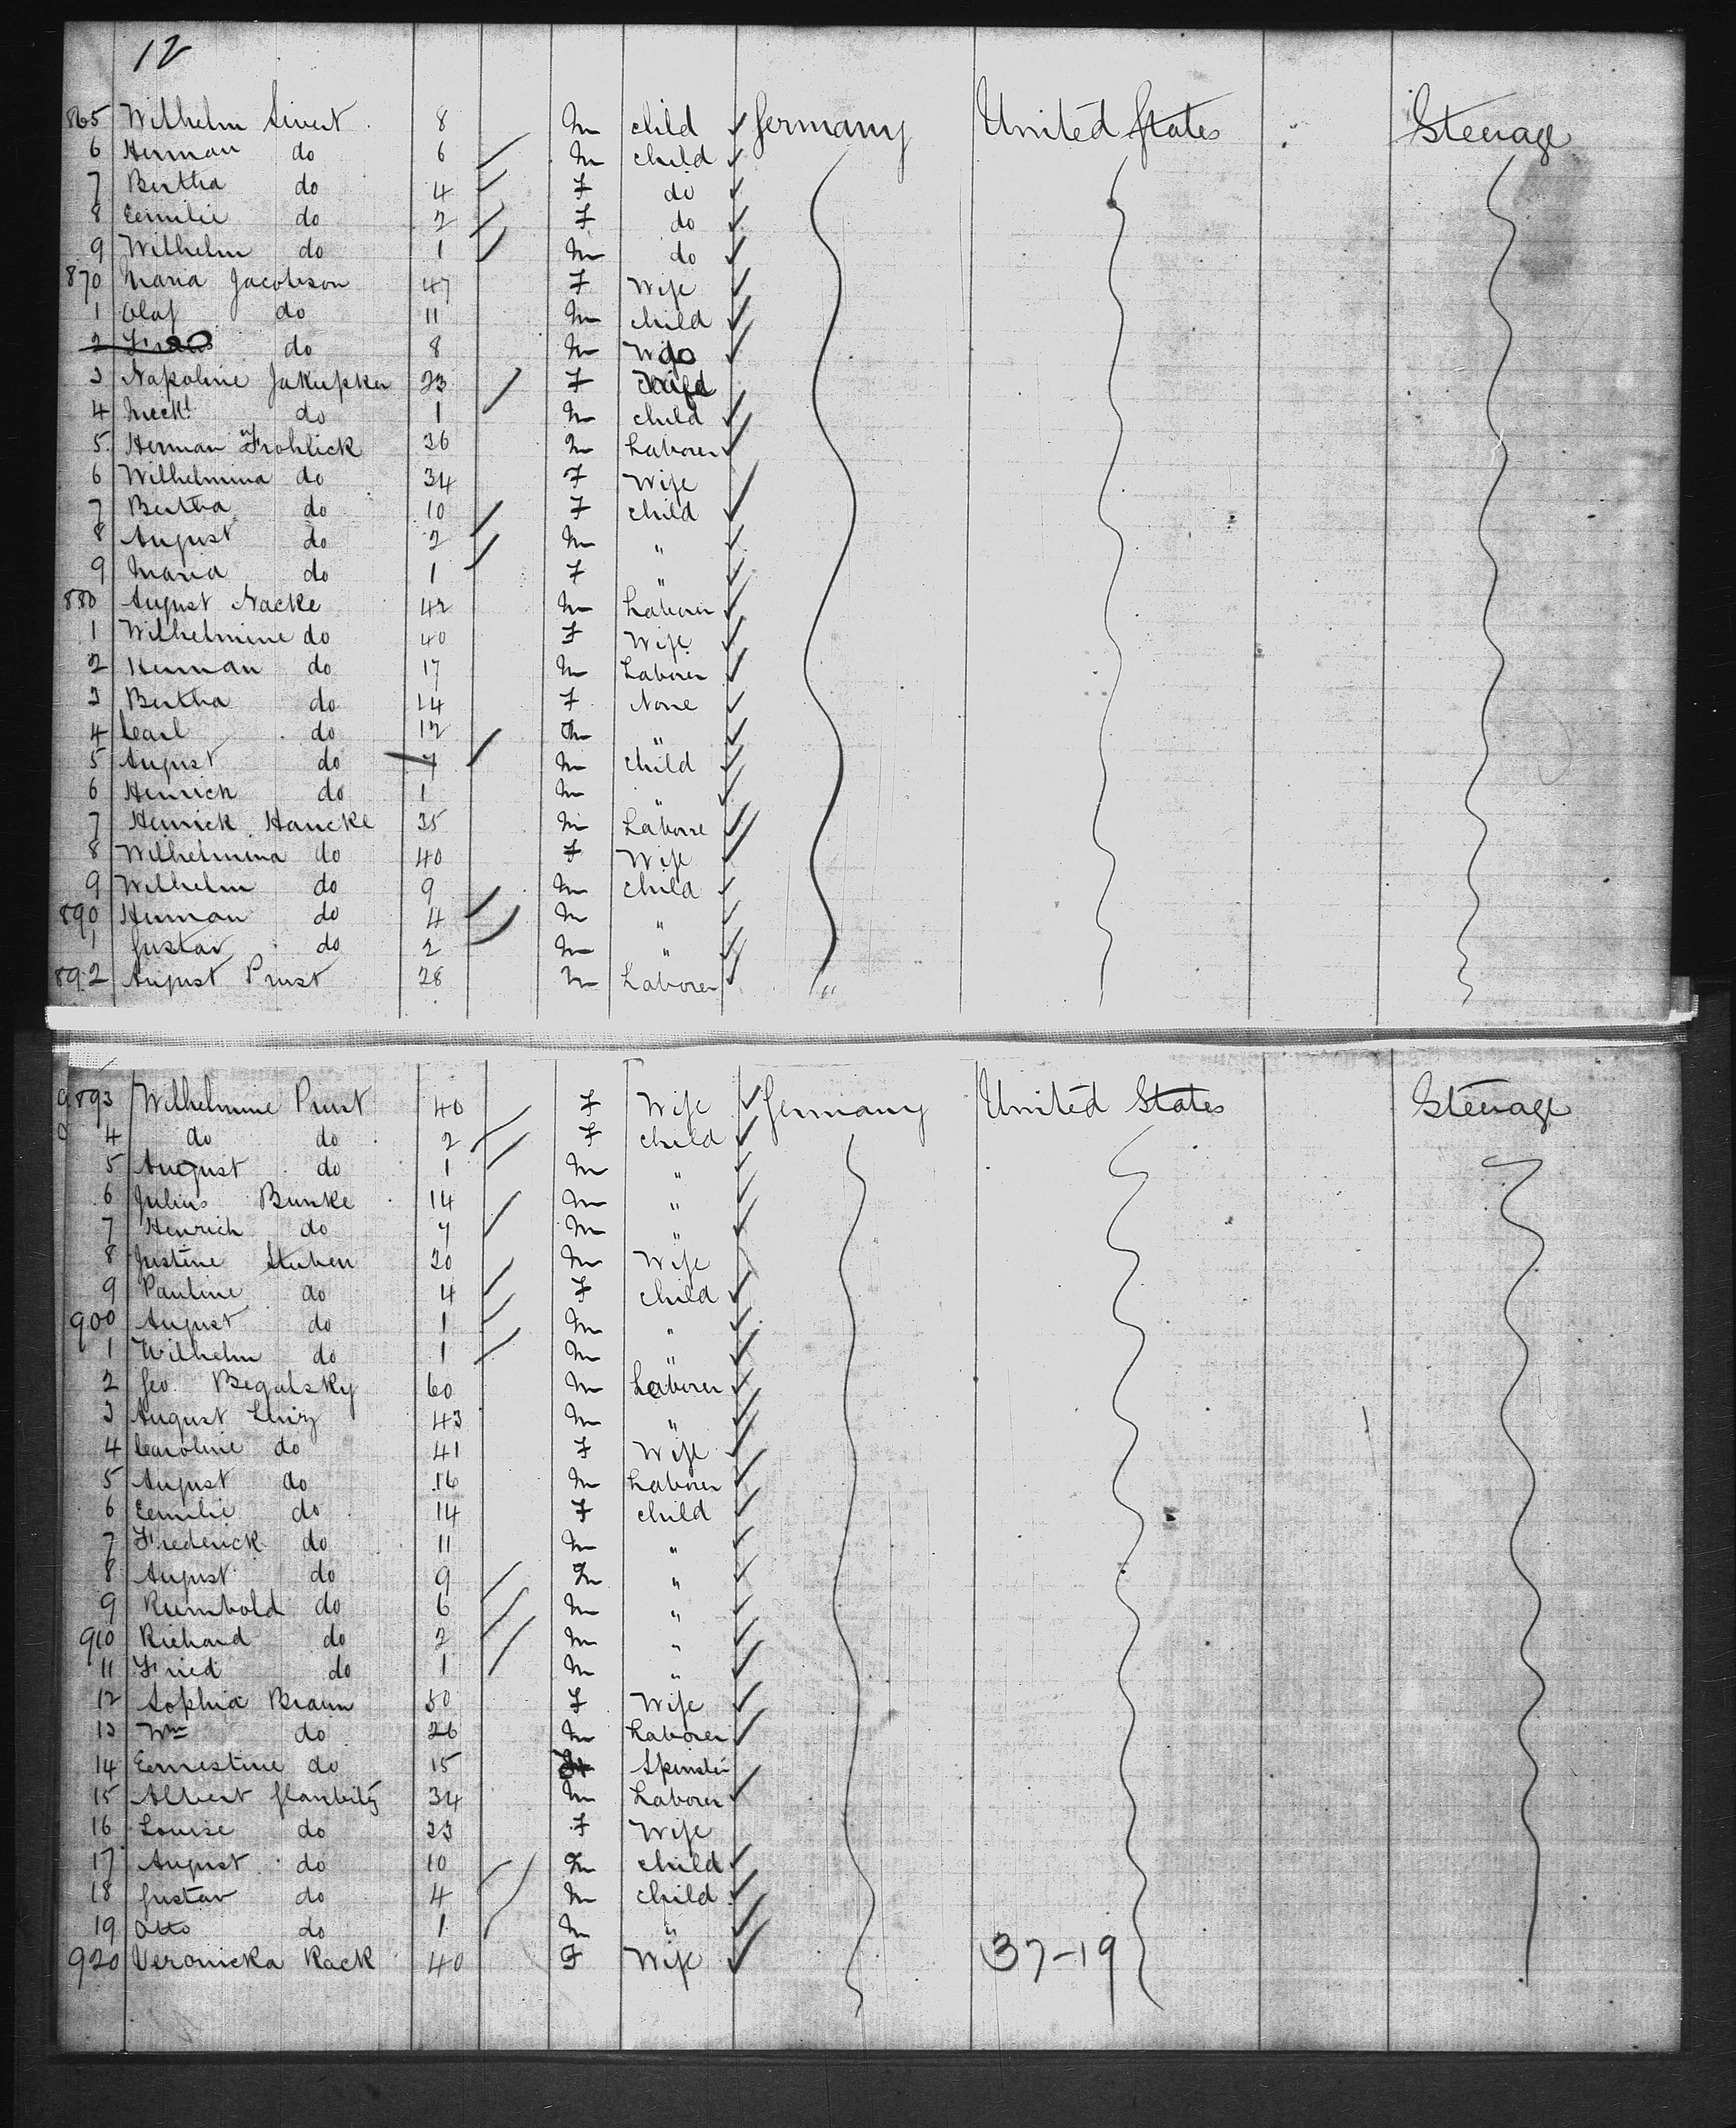 12
865 Wilhelm Sivert 8 M child ✓ Germany United States Steerage
6 Herman do 6 M child ✓
7 Bertha do 4 F do ✓
8 Eemilie do 2 F do ✓
9 Wilhelm do 1 M do ✓
870 Maria Jacobson 47 F Wife ✓
1 Olaf do 11 M child ✓
2 do 8 M do ✓
3 Napoline Jakupka 23 F
4 do 1 M child ✓
5 Herman Frohlick 36 M Laborer ✓
6 Wilhelmina do 34 F Wife ✓
7 Bertha do 10 F child ✓
8 August do 2 M " ✓
9 Maria do 1 F " ✓
880 August Nacke 42 M Laborer ✓
1 Wilhelmine do 40 F Wife ✓
2 Herman do 17 M Laborer ✓
3 Bertha do 14 F None ✓
4 Carl do 12 M " ✓
5 August do 7 M child ✓
6 Henrich do 1 M " ✓
7 Henrick Hancke 35 M Laborre ✓
8 Wilhelmina do 40 F Wife ✓
9 Wilhelm do 9 M child ✓
890 Herman do 4 M " ✓
1 Gustav do 2 M " ✓
892 August Prust 28 M Laborer ✓ "
893 Wilhelmine Prust 40 F Wife ✓ Germany United States Steerage
4 do do 2 F child ✓
5 August do 1 M " ✓
6 Julius Bunke 14 M " ✓
7 Henrich do 7 M " ✓
8 Justine Stuben 30 M Wife
9 Pauline do 4 F child ✓
900 August do 1 M " ✓
1 Wilhelm do 1 M " ✓
2 Geo. Begalsky 60 M Laborer ✓
3 August 43 M " ✓
4 Caroline do 41 F Wife ✓
5 August do 16 M Laborer ✓
6 Eemilie do 14 F child ✓
7 Frederick do 11 M " ✓
8 August do 9 M " ✓
9 Rumbold do 6 M " ✓
910 Richard do 2 M " ✓
11 Fried do 1 M " ✓
12 Sophia Braun 50 F Wife ✓
13 Wm do 26 M Laborer ✓
14 Eernestine do 15 Spinster
15 Albert 34 M Laborer ✓
16 Louise do 23 F Wife
17 August do 10 M child ✓
18 Gustav do 4 M child ✓
19 Otto do 1 M " ✓
920 Veronicka Rack 40 F Wife ✓ 37-19